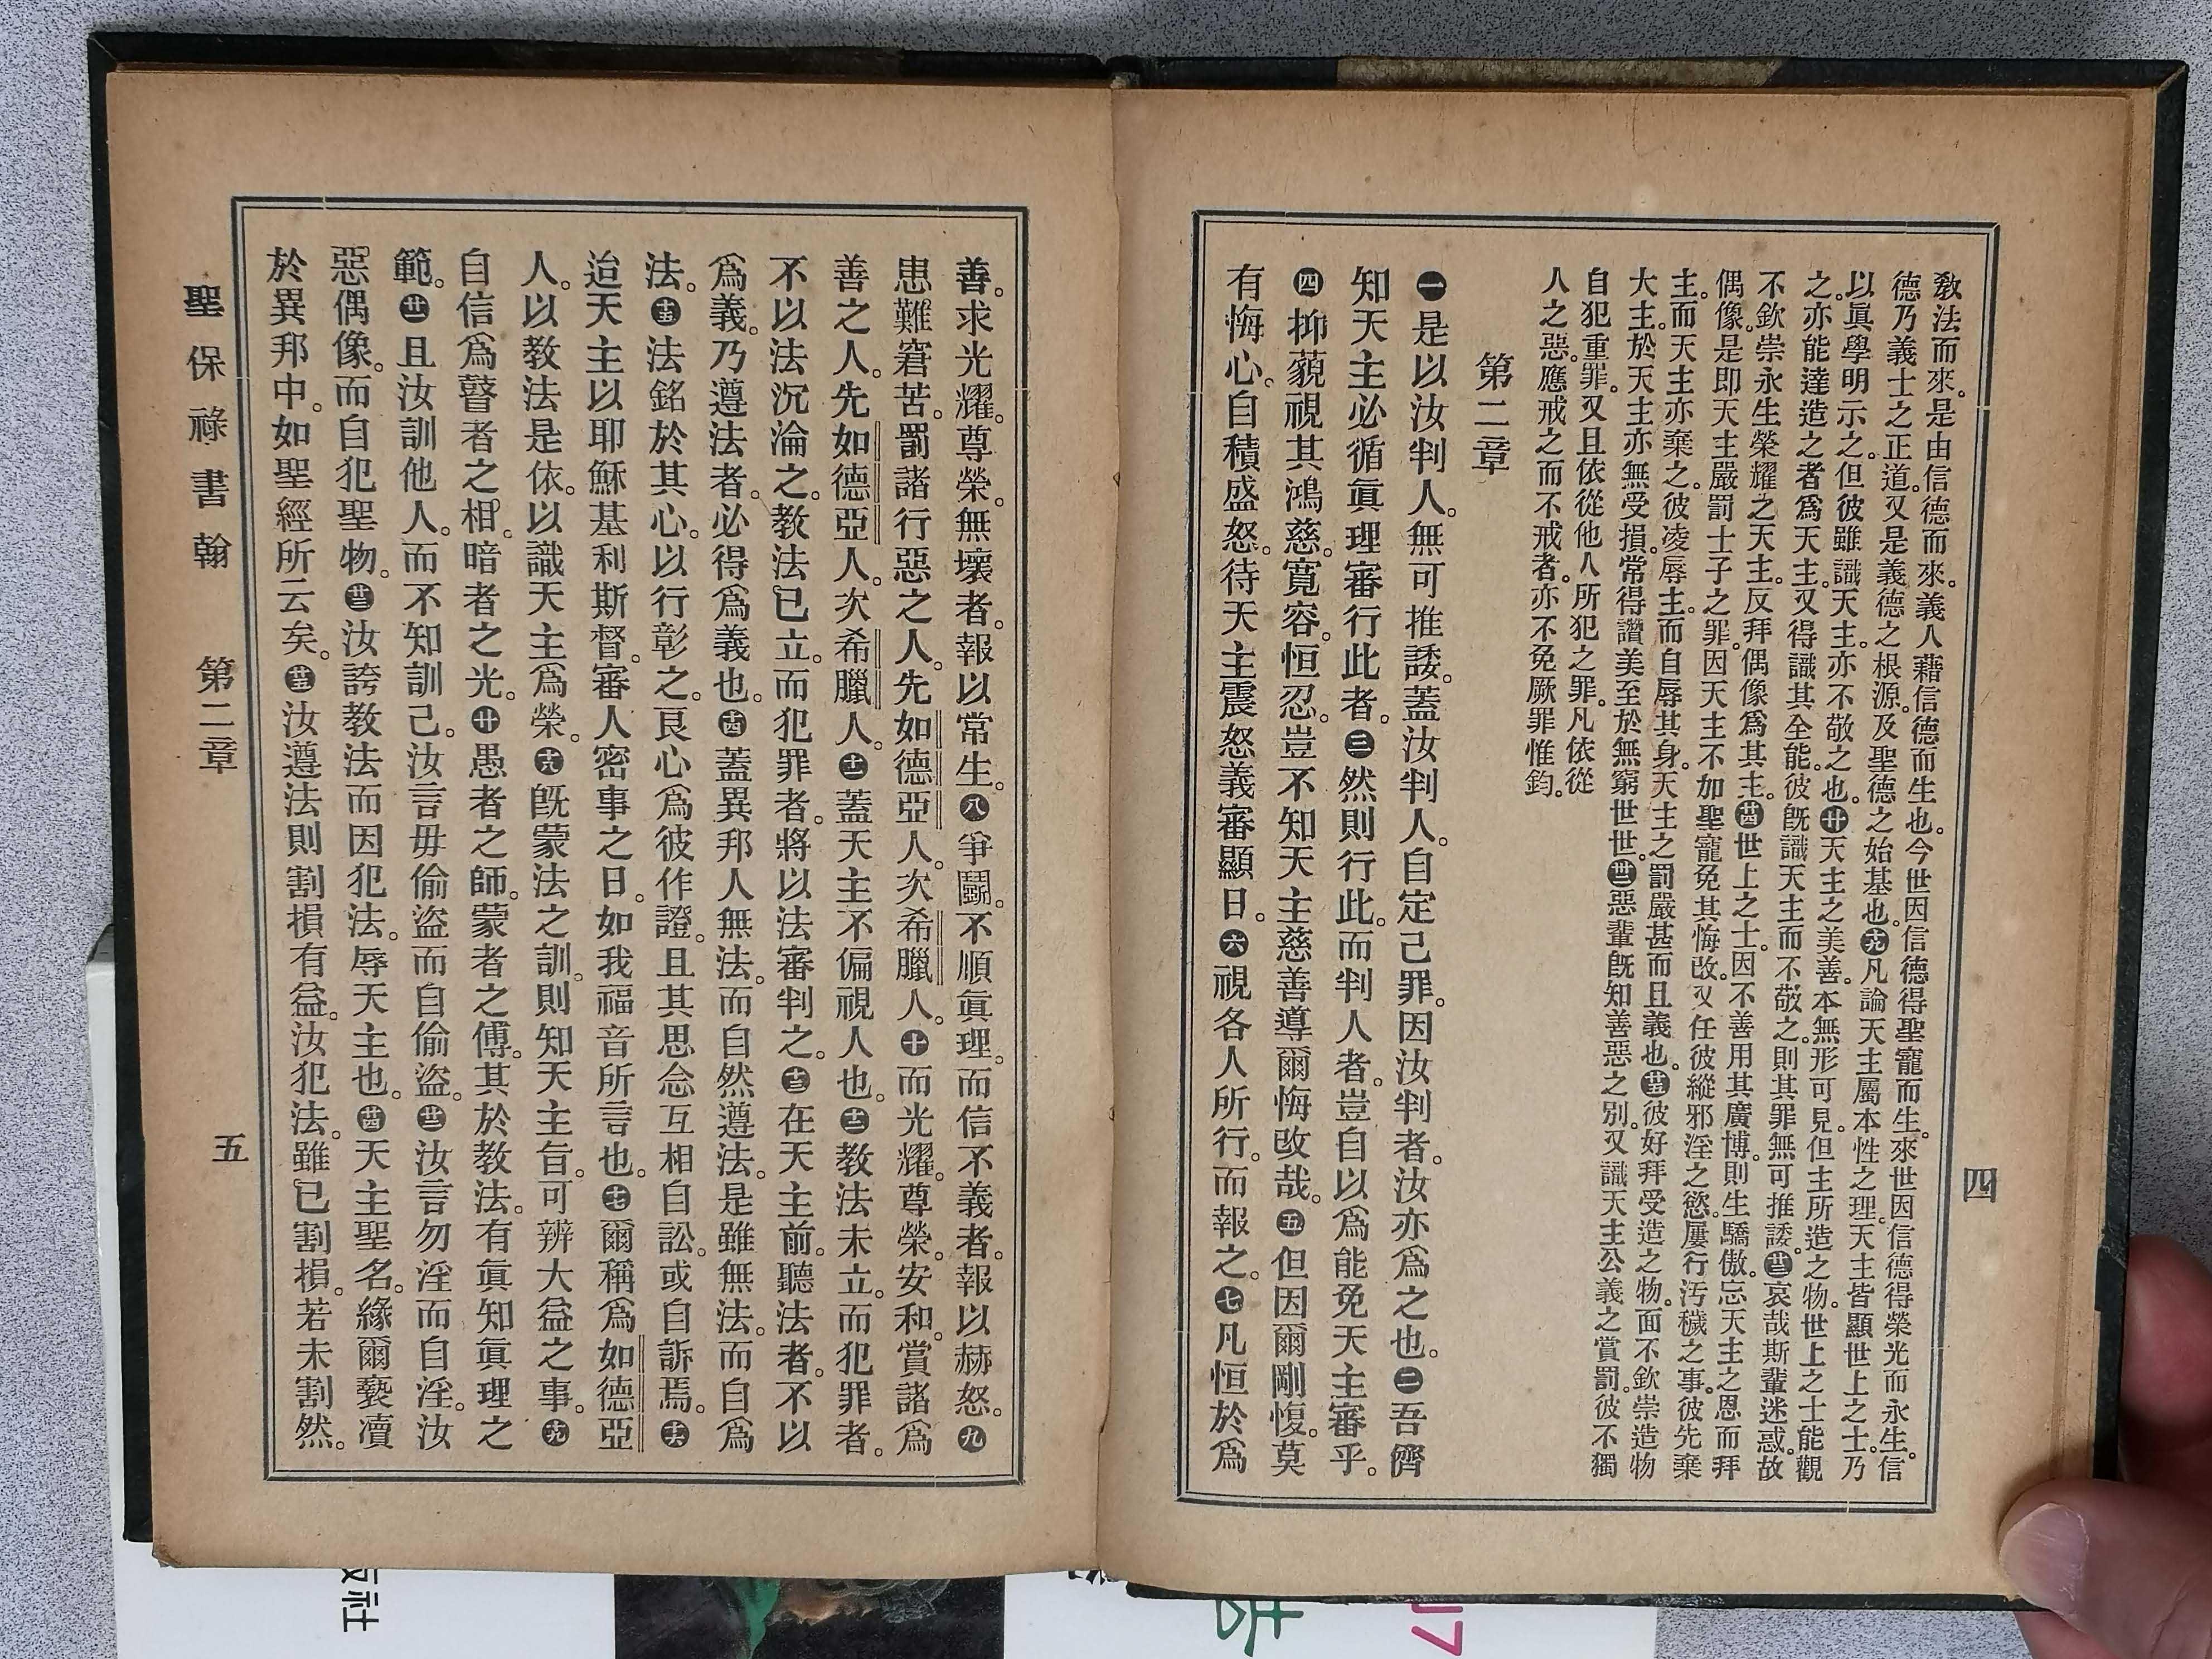 四
教法而來。是由信德而來。義人藉信德而生也。今世因信德得聖寵而生。來世因信德得榮光而永生。信
德乃義士之正道。又是義德之根源。及聖德之始基也。㊉九凡論天主屬本性之理。天主皆顯世上之士。乃
以眞學明示之。但彼雖識天主。亦不敬之也。廿天主之美善。本無形可見。但主所造之物。世上之士能觀
之。亦能達造之者爲天主。又得識其全能。彼旣識天主而不敬之。則其罪無可推諉。廿三哀哉斯輩迷惑。故
不欽崇永生榮耀之天主。反拜偶像爲其主。廿四世上之士。因不善用其廣博。則生驕傲。忘天主之恩而拜
偶像。是即天主嚴罰士子之罪。因天主不如聖寵免其悔改。又任彼縱邪淫之慾。屢行汚穢之事。彼先棄
主。而天主亦棄之。彼凌辱主。而自辱其身。天主之罰嚴甚而且義也。廿五彼好拜受造之物。面不欽崇造物
大主。於天主亦無受損。常得讚美至於無窮世世。卅二惡輩旣知善惡之別。又識天主公義之賞罰。彼不獨
自犯重罪。又且依從他人所犯之罪。凡依從
人之惡。應戒之而不戒者。亦不免厥罪惟鈞。
第二章
一是以汝判人。無可推諉。蓋汝判人。自定己罪。因汝判者。汝亦爲之也。二吾儕
知天主必循眞理審行此者。三然則行此。而判人者。豈自以爲能免天主審乎。
四抑藐視其鴻慈。寬容。恒忍。豈不知天主慈善導爾悔改哉。五但因爾剛愎。莫
有悔心。自積盛怒。待天主震怒義審顯日。六視各人所行。而報之。七凡恒於爲
善。求光耀。尊榮。無壞者。報以常生。八爭鬪。不順眞理。而信不義者。報以赫怒。九
患難窘苦。罰諸行惡之人。先如德亞人。次希臘人。十而光耀。尊榮。安和。賞諸爲
善之人。先如德亞人。次希臘人。十一蓋天主不偏視人也。十二教法未立。而犯罪者。
不以法沉淪之。教法已立。而犯罪者。將以法審判之。十三在天主前。聽法者。不以
爲義。乃遵法者。必得爲義也。十四蓋異邦人無法。而自然遵法。是雖無法。而自爲
法。十五法銘於其心。以行彰之。良心爲彼作證。且其思念互相自訟。或自訴焉。十六
迨天主以耶穌基利斯督。審人密事之日。如我福音所言也。十七爾稱爲如德亞
人。以教法是依。以識天主爲榮。十八旣蒙法之訓。則知天主旨。可辨大益之事。十九
自信爲瞽者之相。暗者之光。廿愚者之師。蒙者之傅。其於教法。有眞知眞理之
範。廿一且汝訓他人。而不知訓己。汝言毋偷盜而自偷盜。廿二汝言勿淫而自淫。汝
惡偶像。而自犯聖物。廿三汝誇教法而因犯法。辱天主也。廿四天主聖名。緣爾褻瀆
於異邦中。如聖經所云矣。廿五汝遵法則割損有益。汝犯法。雖已割損。若未割然。
聖保祿書翰 第二章 五